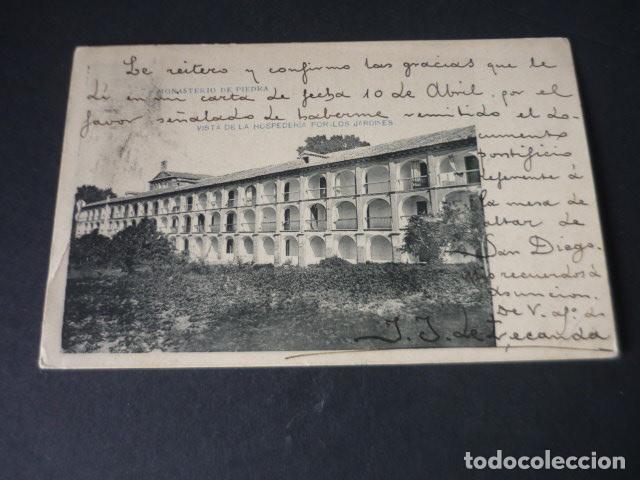 Le reitero y confirmo las gracias que le
MONASTERIO DE PIEDRA
dí en mi carta de fecha 10 de Abril, por el
favor señalado de haberme remitido el do-
VISTA DE LA HOSPEDERÍA POR LOS JARDINES
cumento
pontificio
referente á
la mesa de
altar de
San Diego.
recuerdos á
De V. af.º
J. J. de
todocoleccion.net